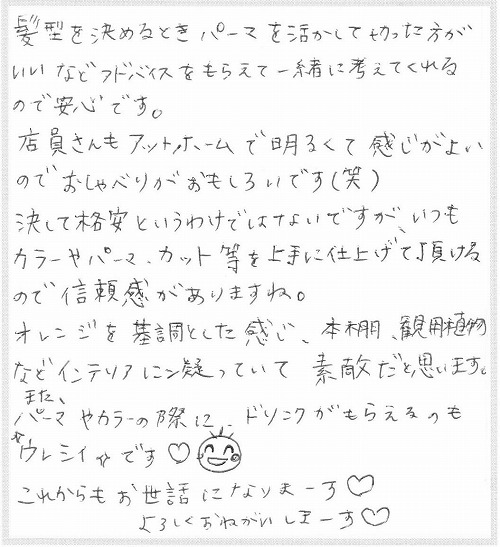 髪型を決めるときパーマを活かして切った方が
いいなどアドバイスをもらえて一緒に考えてくれる
ので安心です。
店員さんもアットホームで明るくて感じがよい
のでおしゃべりがおもしろいです(笑)
決して格安というわけではないですが、いつも
カラーやパーマ、カット等を上手に仕上げて頂ける
ので信頼感がありますね。
オレンジを基調とした感じ、本棚、観用植物
などインテリアに凝っていて素敵だと思います。
また、
パーマやカラーの際に、ドリンクがもらえるのも
☆ウレシイ☆です♡
これからもお世話になりまーす♡
よろしくおねがいしまーす♡